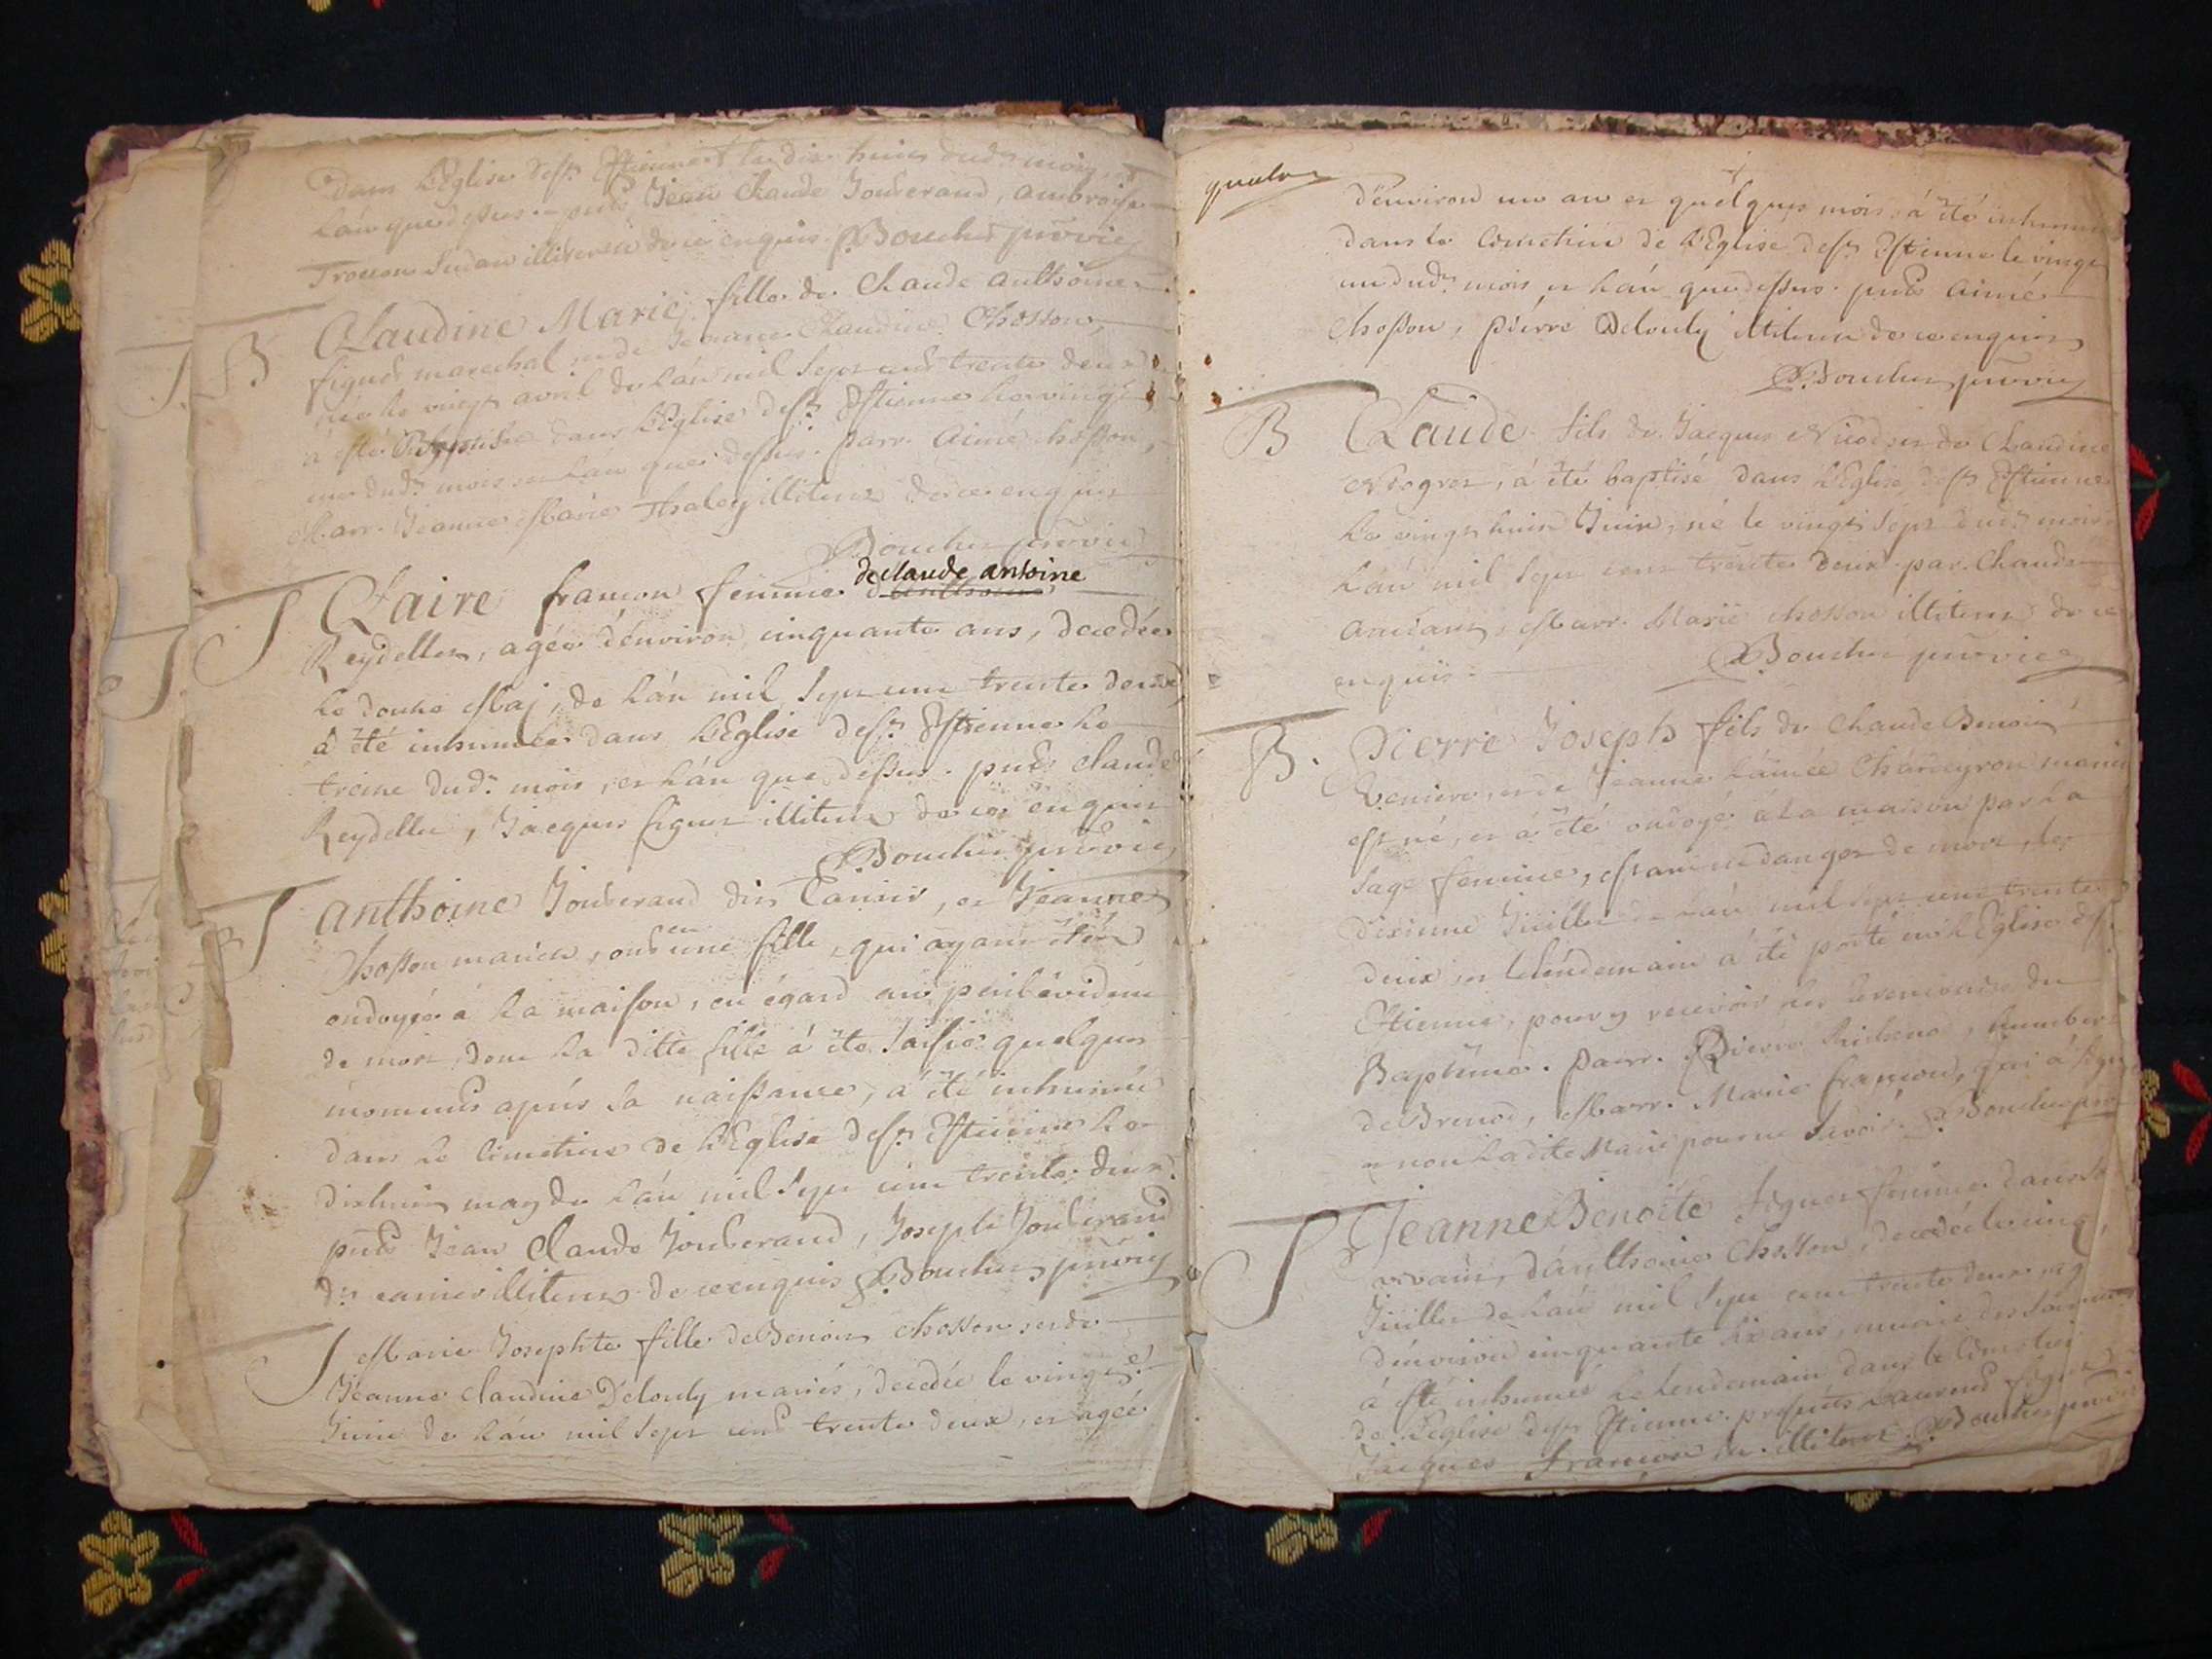 dans L'Eglise de st Estienne le dix huict dud. mois, et
L'án que dessus. pnts Jean Claude Jouberand, ambroise
Trocon Sudan illiteres de ce enquis. Boucher pnt vic
B Claudine Marie fille de Claude Anthoine
figuet marechal et de Jeanne Claudine Chosson,
née le vingt avril de L'án mil sept cent trente deux
a esté Baptisée dans L'Eglise de st Estienne le vingt
un dud. mois et L'án que dessus. parr. Aimé chosson,
Marr. Jeanne Marie Thaley illiteres de ce enquis
Boucher pnt vic
de claude antoine
J Claire francon femme d'anthoine
Reydellet, agée d'énviron cinquante ans, decedée
Le douze Maj, de L'án mil sept cent trente deux,
á été inhumée dans L'Eglise de st Estienne Le
treize dud. mois, et L'án que dessus. pnts claude
Reydellet, Jacques figuet illiteres de ce enquis
Boucher pnt vic
J Anthoine Jouberand dit Canier, et Jeanne
en
Chosson mariés, ont une fille, qui ayant étée
ondoyée á La maison, eu égard au péril évident
de mort dont La ditte fille á été saisie quelques
moments aprés sa naissance, á été inhumée
dans Le Cimetiere de L'Eglise de st Estienne Le
dixhuit may de L'án mil sept cent trente deux.
pnts Jean Claude Jouberand, Joseph Jouberand
dt canier illiteres de ce enquis Boucher pnt vic
J Marie Josephte fille de Benoit chosson et de
Jeanne claudine Delouly mariés, decedée le vingt
Juin de L'án mil sept cent trente deux, et agée
quatre
d'énviron un an et quelques mois, á été inhumée
dans le Cimetiere de L'Eglise de st Estienne le vingt
un dud. mois et L'án que dessus. pnts Aimé
chosson, Pierre Delouly illiteres de ce enquis
Boucher pnt vic
B Claude fils de Jacques Nicod et de Claudine
Mogret, á été baptisé dans L'Eglise de st Estienne
Le vingt huit Juin, né le vingt sept dud. mois
L'án mil sept cent trente deux. par. Claude
Marr. Marie chosson illiteres de ce
enquis. Boucher pnt vic
B. Pierre Joseph fils de Claude Benoit
et de Jeanne Laimée Chardeyron mariés
est né, et á été ondoyé á La maison par La
sage femme, danger de mort, le
dixieme Juillet de L'án mil sept cent trente
deux, et le lendemain á été porté en L'Eglise de st
Etienne, pour y recevoir les ceremonies du
Baptême. Parr. Pierre humbert
de Brenod, Marr. Marie francon, qui á signé
et non La dite Marie pour ne sçavoir. Boucher pnt
J Jeanne Benoite figuet femme dans son
vivant, d'ánthoine Chosson, decedée le cinq
Juillet de L'án mil sept cent trente deux, agée
d'énviron cinquante six ans, munie des sacremens
á été inhumée Le Lendemain dans le Cimetiere
de L'Eglise de st Etienne. presents Laurend figuet
Jacques francon illiteres. Boucher pnt